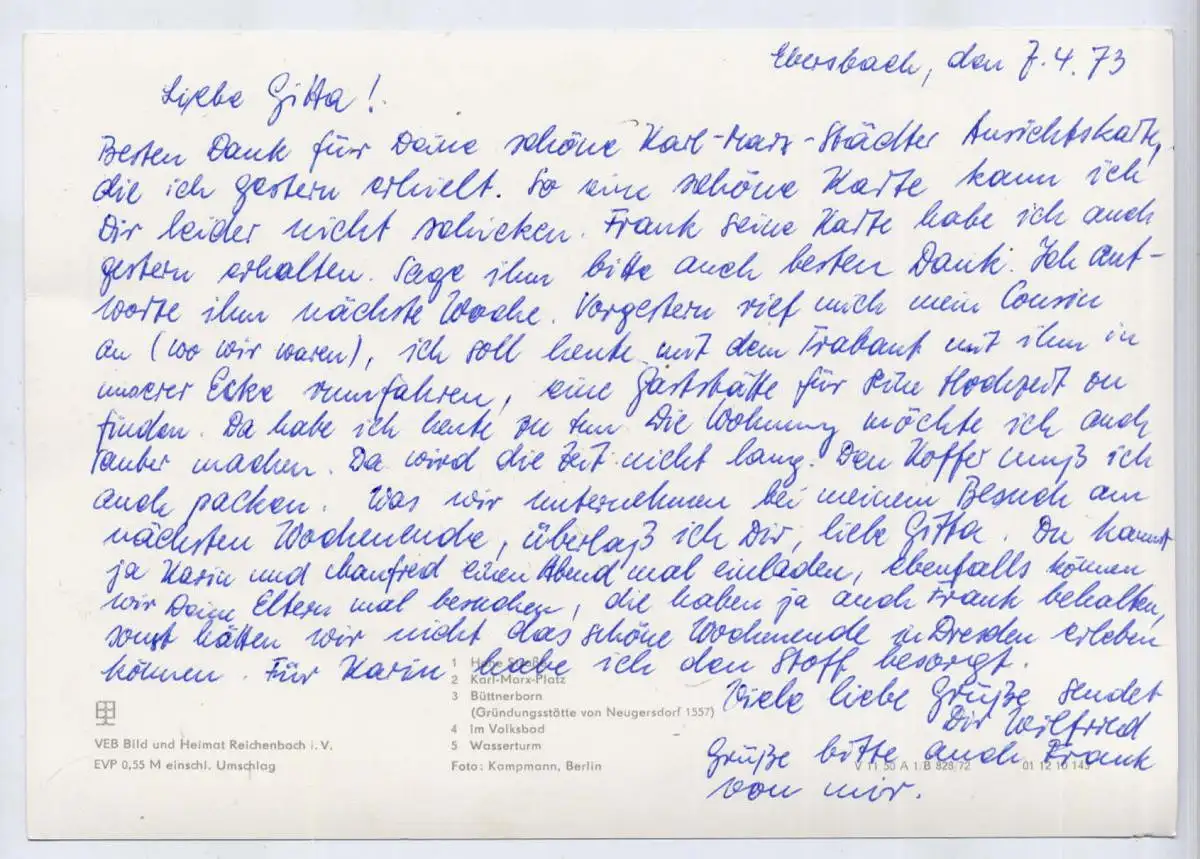 Ebersbach, den 7.4.73
Liebe Gitta!
Besten Dank für Deine schöne Karl-Marx-Städter Ansichtskarte,
die ich gestern erhielt. So eine schöne Karte kann ich
Dir leider nicht schicken. Frank seine Karte habe ich auch
gestern erhalten. Sage ihm bitte auch besten Dank. Ich ant-
worte ihm nächste Woche. Vorgestern rief mich mein Cousin
an (wo wir waren), ich soll heute mit dem Trabant mit ihm in
unserer Ecke rumfahren, eine Gaststätte für seine Hochzeit zu
finden. Da habe ich heute zu tun. Die Wohnung möchte ich auch
sauber machen. Da wird die Zeit nicht lang. Den Koffer muß ich
auch packen. Was wir unternehmen bei meinem Besuch am
nächsten Wochenende, überlaß ich Dir, liebe Gitta. Du kannst
ja Karin und Manfred einen Abend mal einladen, ebenfalls können
wir Deine Eltern mal besuchen, die haben ja auch Frank behalten,
sonst hätten wir nicht das schöne Wochenende in Dresden erleben
können. Für Karin habe ich den Stoff besorgt.
Viele liebe Grüße sendet
Dir Wilfried
Grüße bitte auch Frank
von mir.
1 Hohe Straße
2 Karl-Marx-Platz
3 Büttnerborn
(Gründungsstätte von Neugersdorf 1557)
4 Im Volksbad
5 Wasserturm
Foto: Kampmann, Berlin
VEB Bild und Heimat Reichenbach i. V.
EVP 0,55 M einschl. Umschlag
V 11 50 A 1/B 828/72 01 12 10 143